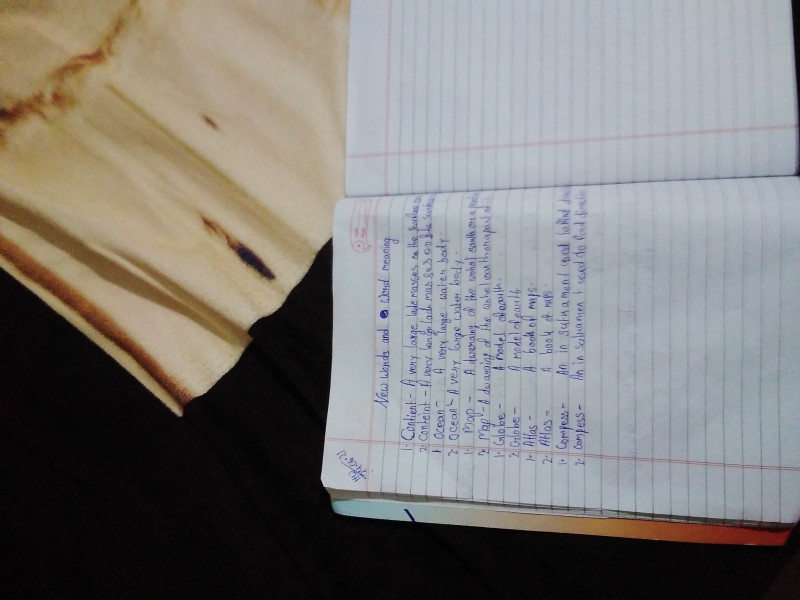 New words and word meaning
1. Contient- A very large lademasses on the surface
2. Conteint- A very large lade masses on the surface
1. Ocean- A very large water body.
2. Ocean- A very large water body.
1. Map- A dwaning of the earth or a part
2. Map- A dwaning of the earth or a part of it
1. Globe- A model of earth.
2. Globe- A model of earth
1. Atlas- A book of maps
2. Atlas- A book of maps
1. Compess- An in strument used to find
2. Compess- An in strument used to find direction